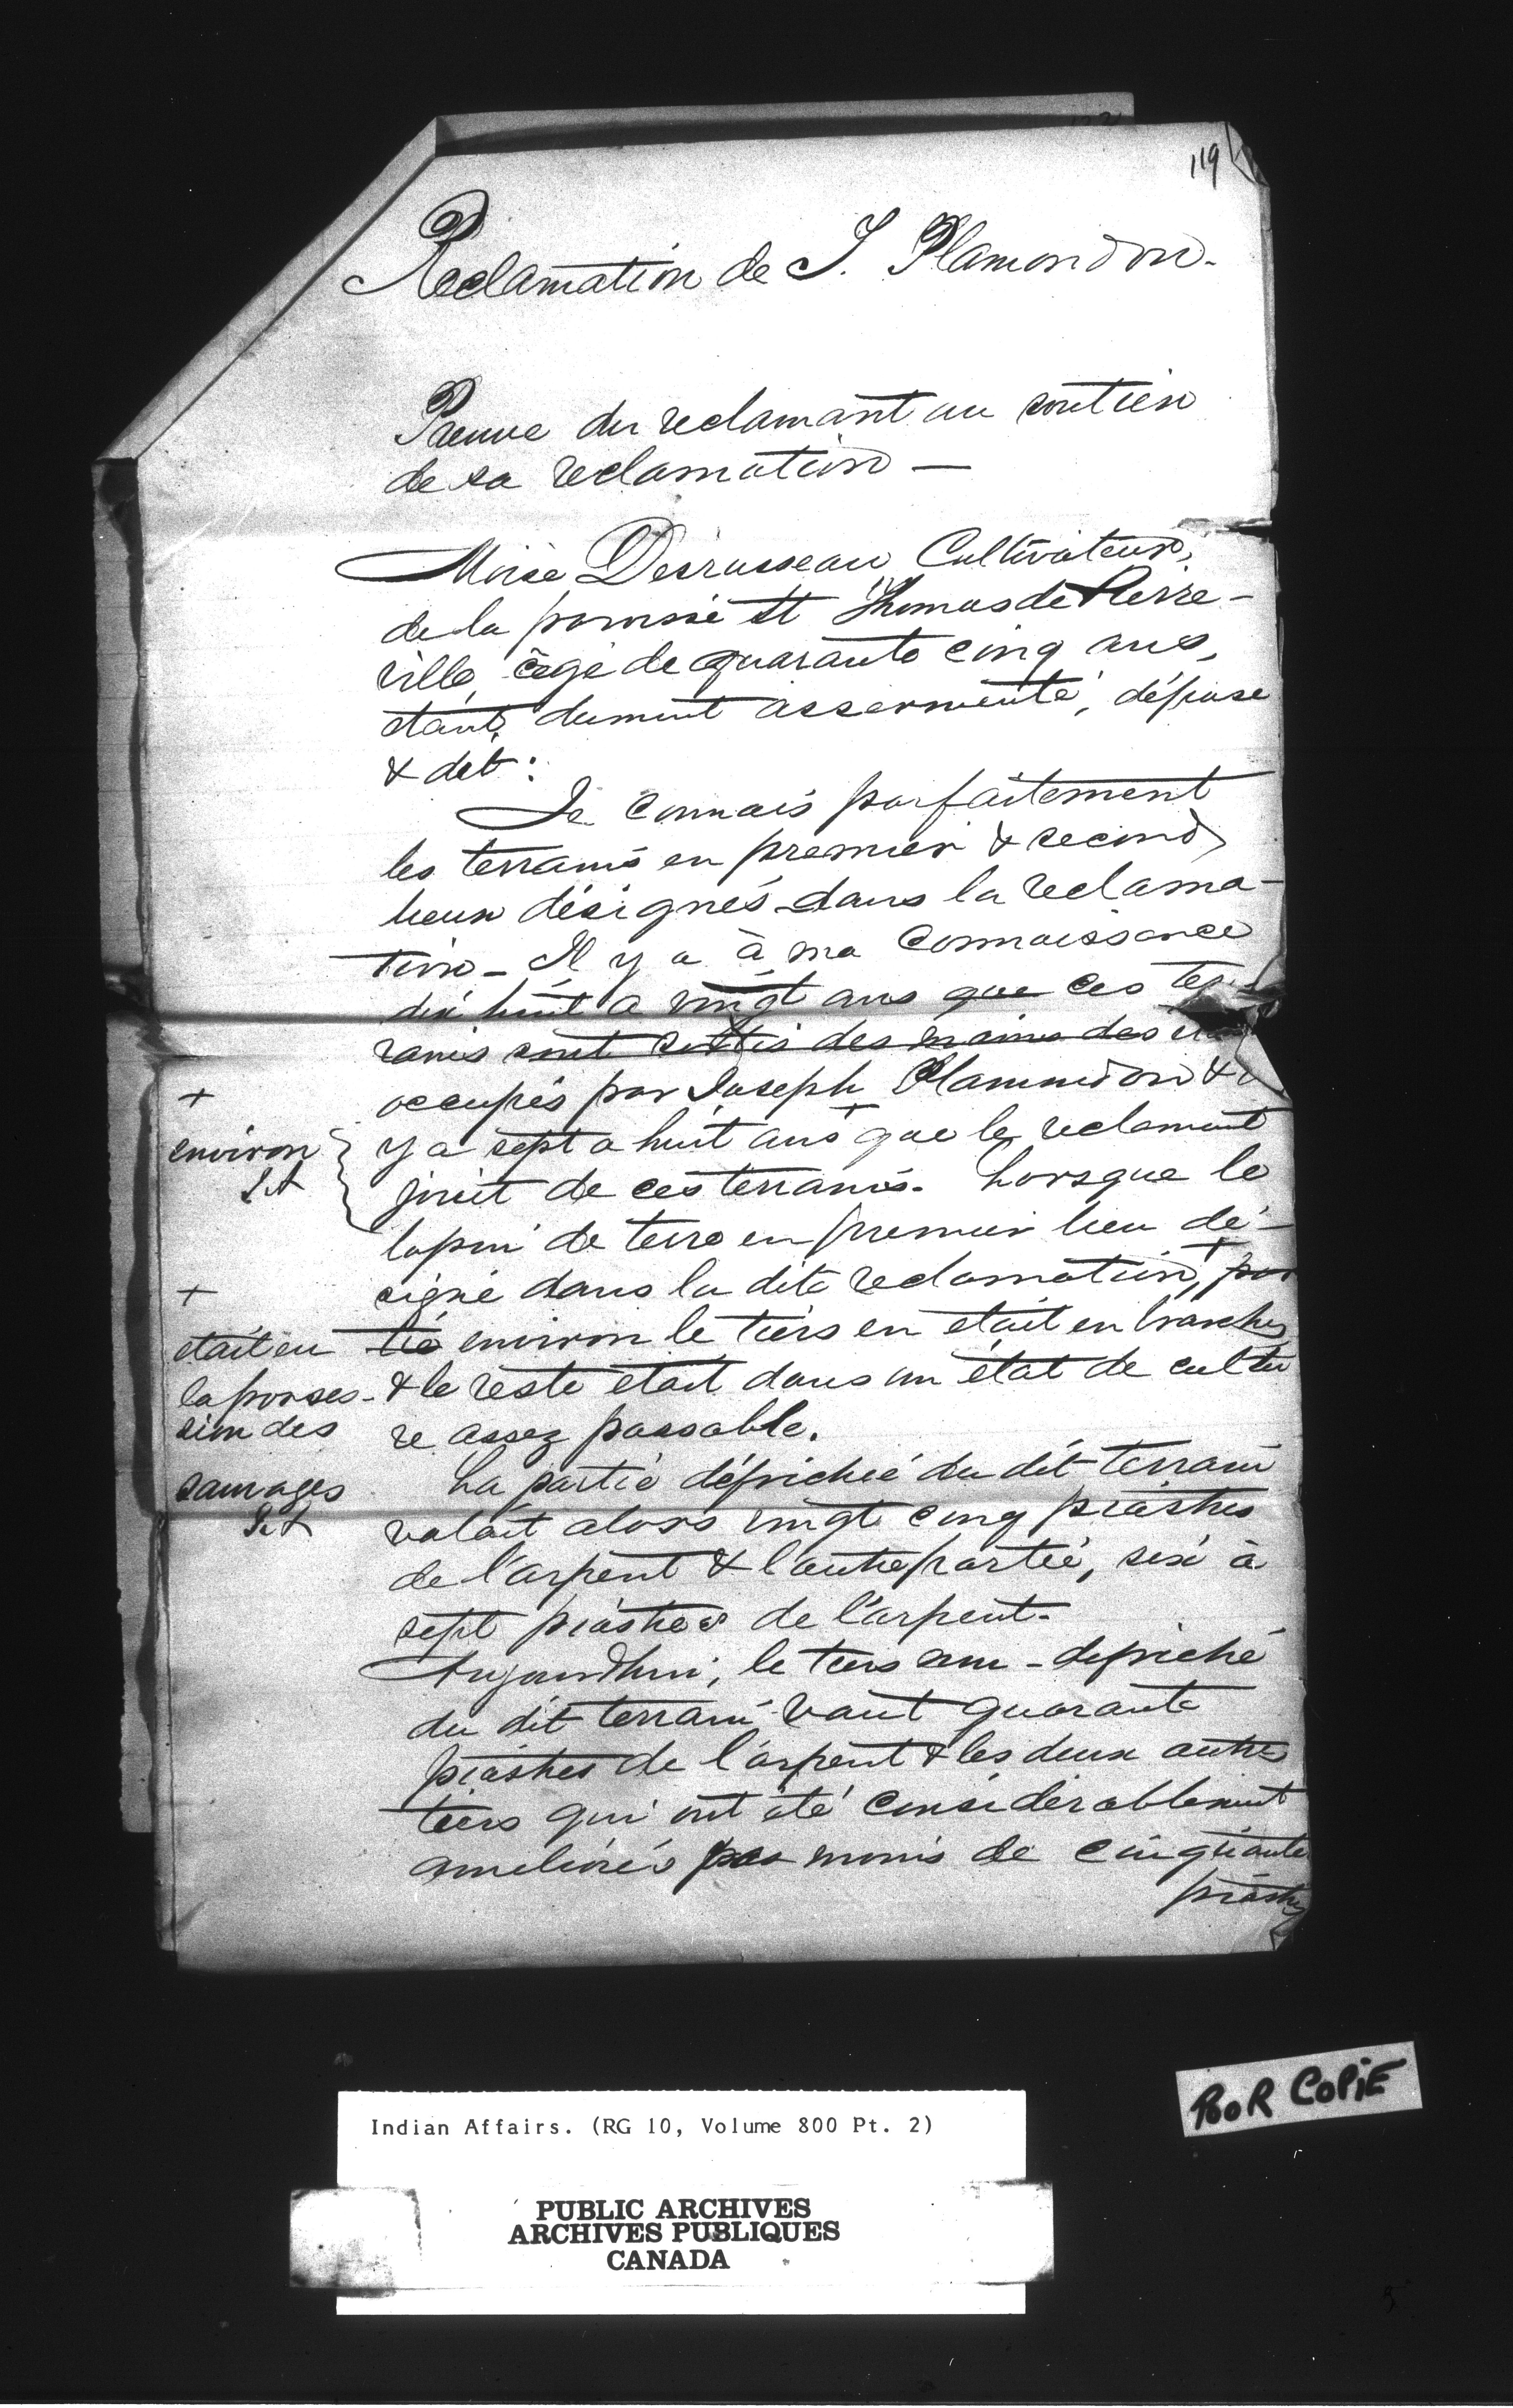 119
Reclamation de J. Plamondon.
Preuve du reclamant au soutien
de sa reclamation —
Moise Desrusseau Cultivateur,
de la paroisse St Thomas de Pierre-
ville, âgé de quarante cinq ans,
etant dument assermenté, dépose
& dit :
Je connais parfaitement
les terrains en premier & second
lieux désignés dans la reclama-
tion - Il y a à ma connaissance
dix huit a vingt ans que ces ter-
rains sont sortis des mains des
occupés par Joseph Plamondon &
+
environ
y a sept a huit ans + que le reclamant
jouit de ces terrains. Lorsque le
lopin de terre en premier lieu dé-
signé dans la dite reclamation, + par
+
etait en
la posses-
sion des
sauvages
tie environ le tiers en etait en branches
& le reste etait dans un état de cultu
re assez passable.
La partie défrichée du dit terrain
valait alors vingt cinq piastres
de l'arpent & l'autre partie, six à
sept piastres de l'arpent.
Aujourdhui, le tiers non-defriché
du dit terrain vaut quarante
piastres de l'arpent & les deux autres
tiers qui ont été considerablement
ameliorés pas moins de cinquante
piastres
POOR COPIE
Indian Affairs. (RG 10, Volume 800 Pt. 2)
PUBLIC ARCHIVES
ARCHIVES PUBLIQUES
CANADA